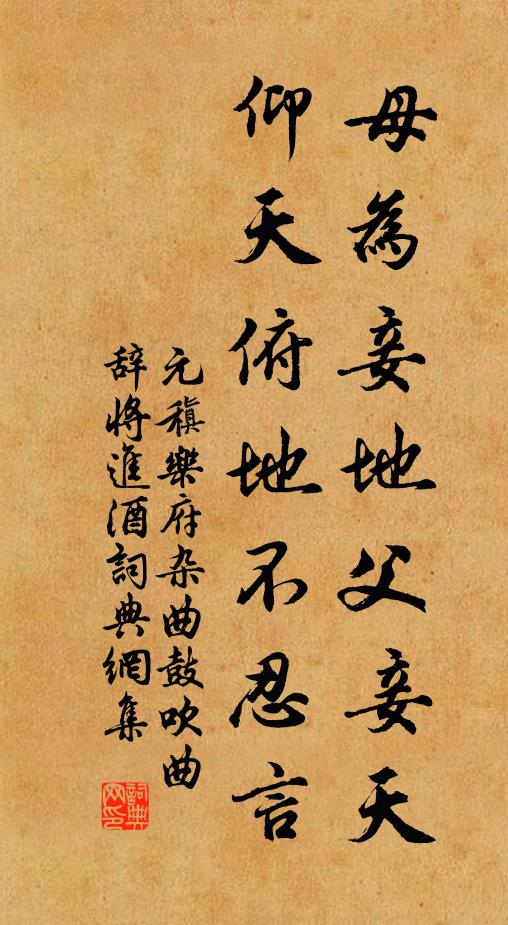 母為妾地父妾天
仰天俯地不忍言
元稹樂府杂曲鼓吹曲
辞將進酒詞典網集
詞典网印